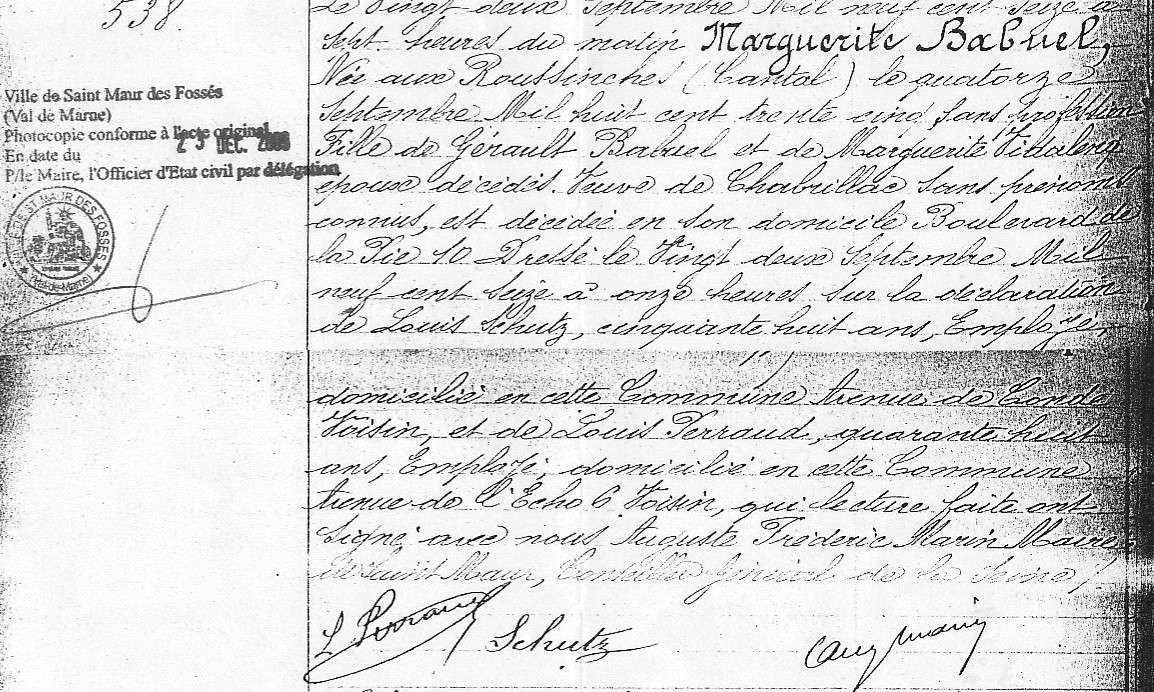 538
Le Vingt deux Septembre Mil neuf cent seize à
Sept heures du matin Marguerite Babuel,
Née aux Roussinches (Cantal) le quatorze
Septembre Mil huit cent trente cinq, sans profession
Fille de Gérault Babuel et de Marguerite
épouse décédés. Veuve de Chabrillac sans prénoms
connus, est décédée en son domicile Boulevard de
la Pie 10. Dressé le Vingt deux Septembre Mil
neuf cent seize à onze heures sur la déclaration
de Louis Schutz, cinquante huit ans, Employé,
domicilié en cette Commune Avenue de Condé
Voisin, et de Louis Perraud, quarante huit
ans, Employé, domicilié en cette Commune
Avenue de l'Echo 6 Voisin, qui lecture faite ont
Signé avec nous Auguste Fréderic Marin Maire
de Saint Maur, Conseiller Général de la Seine /.
L Perraud
Schutz
Aug Marin
Ville de Saint Maur des Fossés
(Val de Marne)
Photocopie conforme à l'acte original
En date du
DEC.
P/le Maire, l'Officier d'Etat civil par délégation
ST MAUR DES FOSSES
(Val-de-Marne)